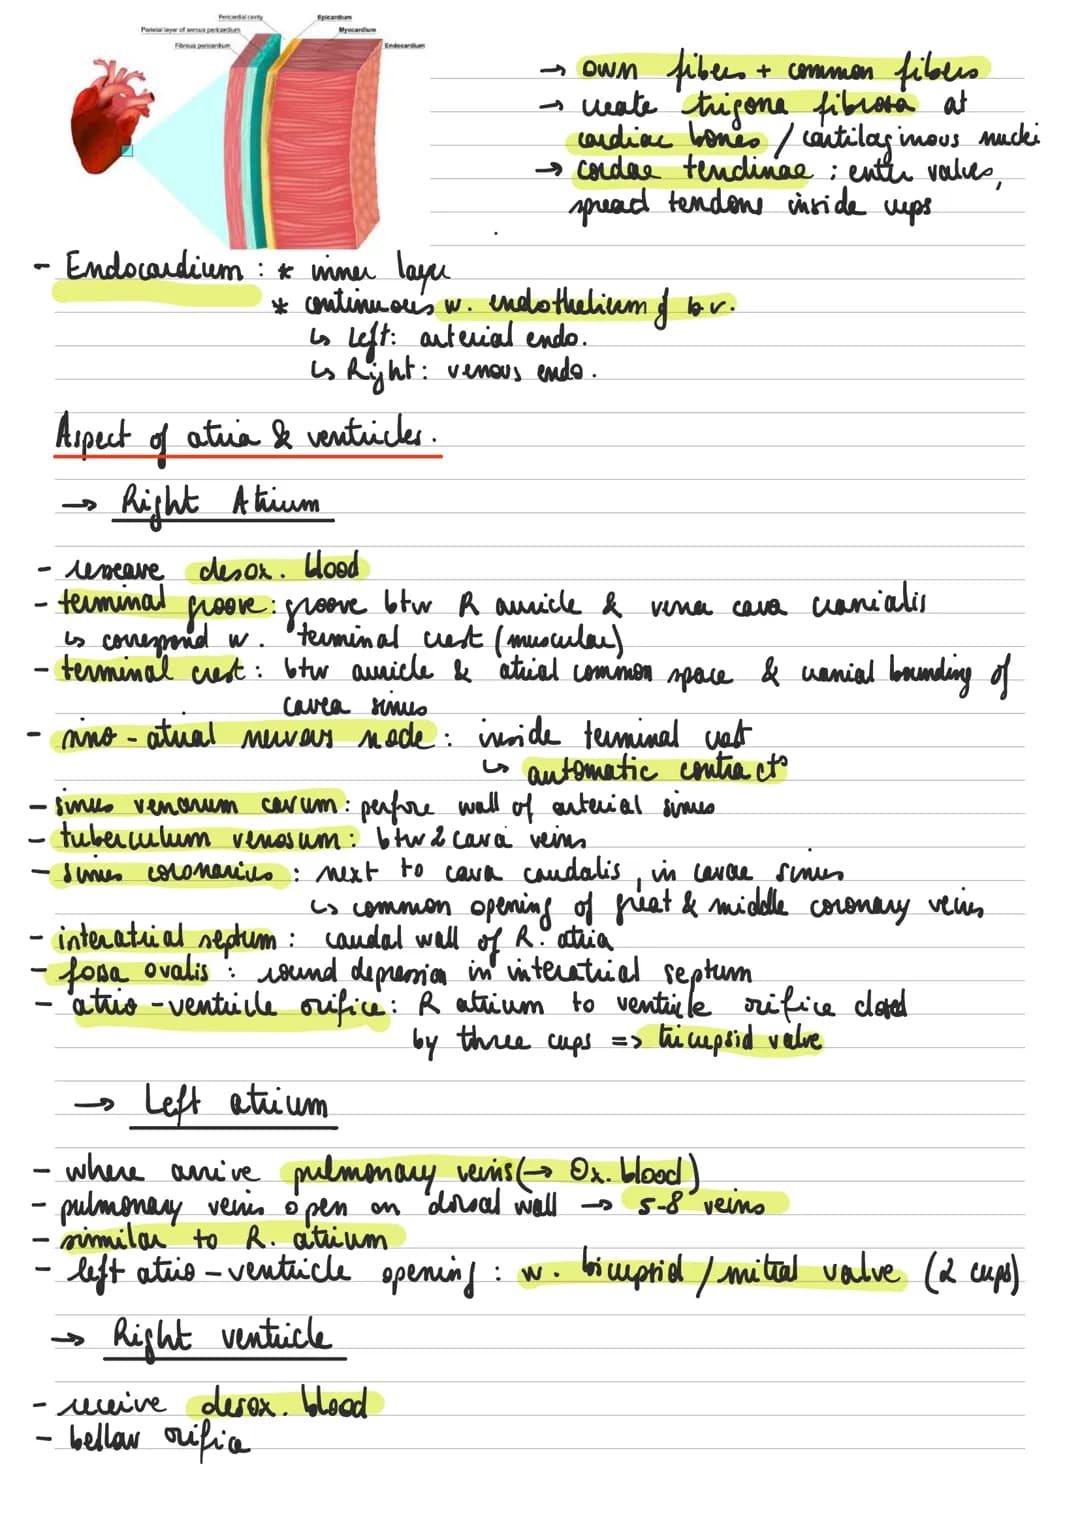 Pericardial cavity
Epicardium
Parietal layer of serous pericardium
Myocardium
Fibrous pericardium
Endocardium
→ own fibers + common fibers
→ create trigona fibrosa at
cardiac bones / cartilaginous nucki
→ cordae tendinae : enter valves,
spread tendons inside cups
- Endocardium : * inner layer
* continuous w. endothelium of b.v.
↳ Left: arterial endo.
↳ Right: venous endo.
Aspect of atria & ventricles.
→ Right Atrium
- desox. blood
- terminal groove: groove btw R auricle & vena cava cranialis
↳ correspond w. terminal crest (muscular)
- terminal crest : btw auricle & atrial common space & cranial bounding of
cavea sinus
- sino-atrial nervous node : inside terminal crest
↳ automatic contract°
- sinus venarum cavum: perfore wall of arterial sinus
- tuberculum venosum: btw 2 cava veins
- sinus coronarius : next to cava caudalis, in cavae sinus
↳ common opening of great & middle coronary veins
- interatrial septum : caudal wall of R. atria
- fossa ovalis : round depression in interatrial septum
- atrio-ventricle orifice: R atrium to ventricle orifice closed
by three cups => tricupsid valve
→ Left atrium
- where arrive pulmonary veins (→ Ox. blood)
- pulmonary veins open on dorsal wall → 5-8 veins
- similar to R. atrium
- left atrio-ventricle opening : w. bicupsid / mitral valve (2 cups)
→ Right ventricle
- receive desox. blood
- bellow orifice